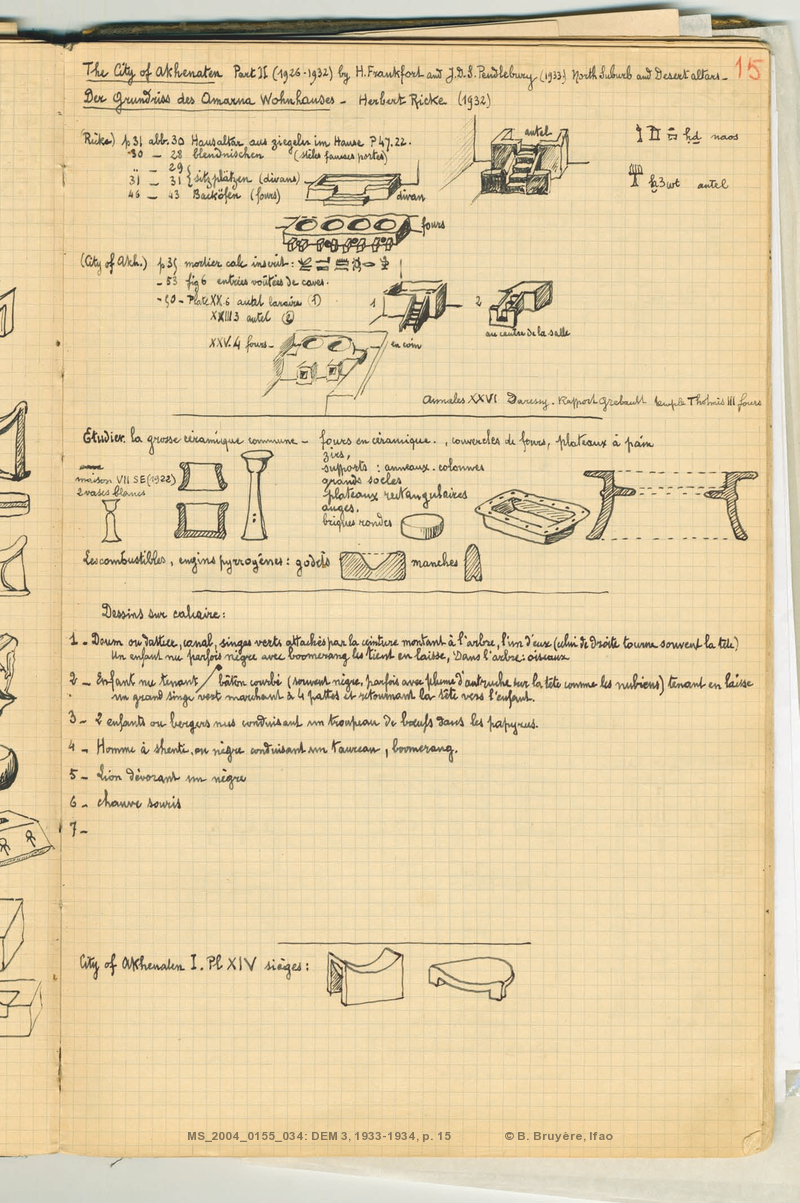 15
The City of Akhenaten Part II (1926-1932) by H. Frankfort and J.D.S. Pendlebury (1933) North Suburb and Desert altars _
Der Grundriss des Amarna Wohnhauses _ Herbert Ricke (1932)
Ricke) p31 abb. 30 Hausaltar aus ziegeln im Hause P 47.22.
30 _ 28 blendnischen (stèles fausses portes)
" _ 29
31 _ 31 sitzplätzen (divans)
46 _ 43 Backöfen (fours)
divan
autel
ḥd naos
ḫ3wt autel
fours
(City of Akh.) p 35 mortier calc inscrit :
- 53 fig 6 entrées voûtées de caves.
- 90 _ Plate XX.6 autel laraire (1)
XXIII 3 autel (2)
1
2
au centre de la salle
XXV.4 fours _
en coin
Annales XXVI Daressy. Rapport Grébault temple Thotmès III fours
Etudier. la grosse céramique commune _ fours en céramique. , couvercles de fours, plateaux à pain
zirs,
supports : anneaux. colonnes
grands socles
plateaux rectangulaires
auges.
briques rondes
maison VII SE (1922)
2 vases blancs
Les combustibles, engins pyrogènes : godets
manches
Dessins sur calcaire :
1 _ Doum ou dattier, canal, singes verts attachés par la ceinture montant à l'arbre, l'un d'eux (celui de droite tourne souvent la tête)
Un enfant nu parfois nègre avec boomerang les tient en laisse, Dans l'arbre : oiseaux
2 _ Enfant nu tenant bâton courbé (souvent nègre, parfois avec plume d'autruche sur la tête comme les nubiens) tenant en laisse
un grand singe vert marchant à 4 pattes et retournant la tête vers l'enfant.
3 _ 2 enfants ou bergers nus conduisant un troupeau de bœufs dans les papyrus.
4 _ Homme à shenti, ou nègre conduisant un taureau, boomerang.
5 _ Lion dévorant un nègre
6 _ chauve souris
7 _
City of Akhenaten I. Pl XIV sièges :
MS_2004_0155_034: DEM 3, 1933-1934, p. 15 © B. Bruyère, Ifao